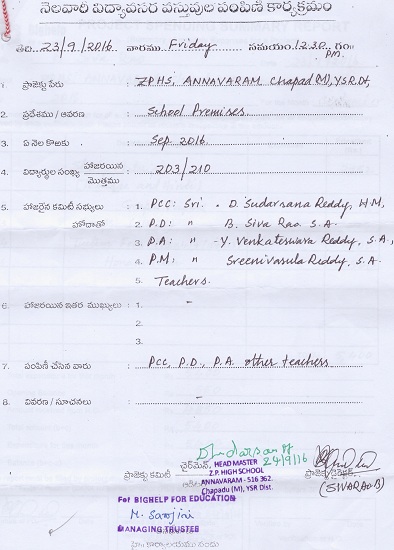 నెలవారీ విద్యావసర వస్తువుల పంపిణీ కార్యక్రమం
తేది 23/9/2016 వారము Friday సమయం 12.30 గం॥
PM.
1. ప్రాజెక్టు పేరు : ZPHS, ANNAVARAM Chapad (M), YSR Dt,
2. ప్రదేశము / ఆవరణ : School Premises
3. ఏ నెల కొఱకు : Sep 2016
4. విద్యార్థుల సంఖ్య హాజరయిన / మొత్తము : 203/210
5. హాజరైన కమిటీ సభ్యులు : 1. PCC: Sri. D. Sudarsana Reddy, H.M,
హోదాతో 2. P.D: " B. Siva Rao. S.A.
3. P.A: " Y. Venkateswara Reddy, S.A,
4. P.M: " Sreenivasula Reddy, S.A-
5. Teachers.
6. హాజరయిన ఇతర ముఖ్యులు : 1. -
2.
3.
7. పంపిణీ చేసిన వారు : PCC, P.D., P.A. other teachers
8. వివరణ / సూచనలు : -
24/9/16
ఛైర్మెన్, HEAD MASTER
ప్రాజెక్టు కమిటీ Z.P. HIGH SCHOOL
ANNAVARAM - 516 362.
Chapadu (M), YSR Dist.
(SIVARAO.B)
For BIGHELP FOR EDUCATION
M. Sarojini
MANAGING TRUSTEE